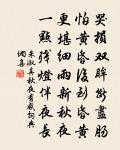 哭損雙眸斷盡腸
怕黃昏後到昏黃
更堪細雨新秋夜
一點殘燈伴夜長
朱淑真秋夜有感詞典
網